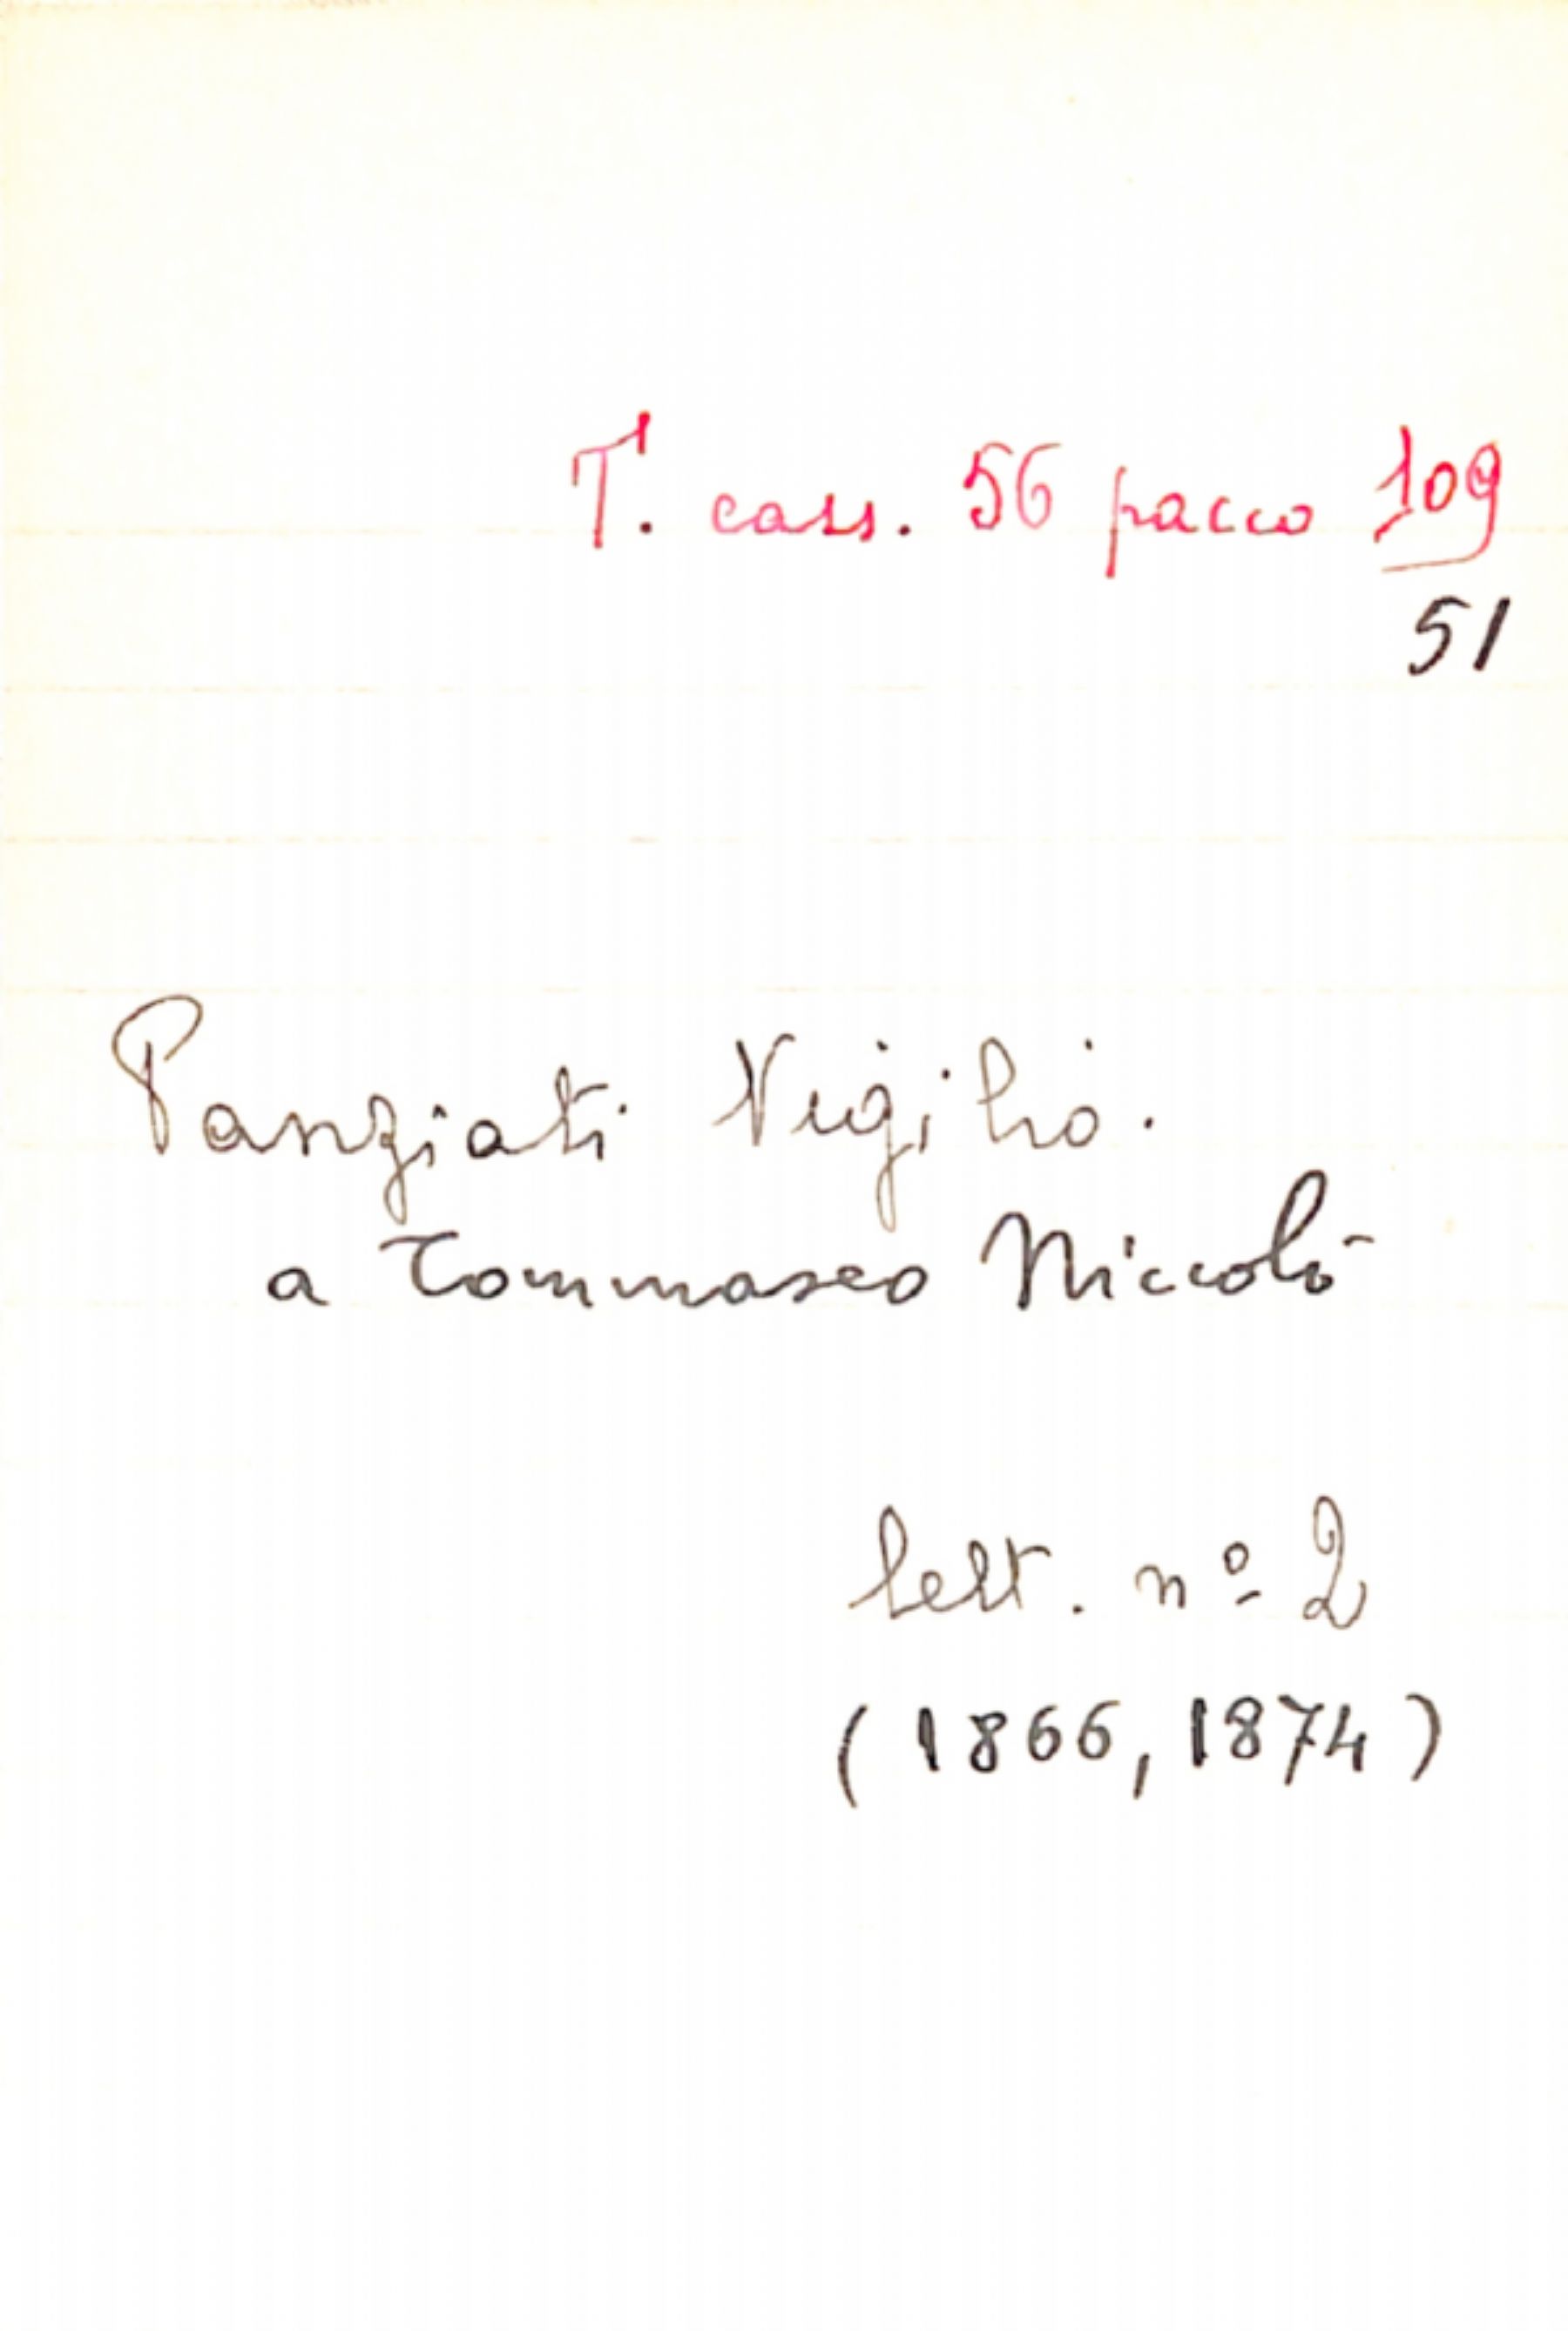 T. cass. 56 pacco 109
51
Panziati Vigilio.
a Tommaseo Niccolò
lett. nº 2
(1866, 1874)